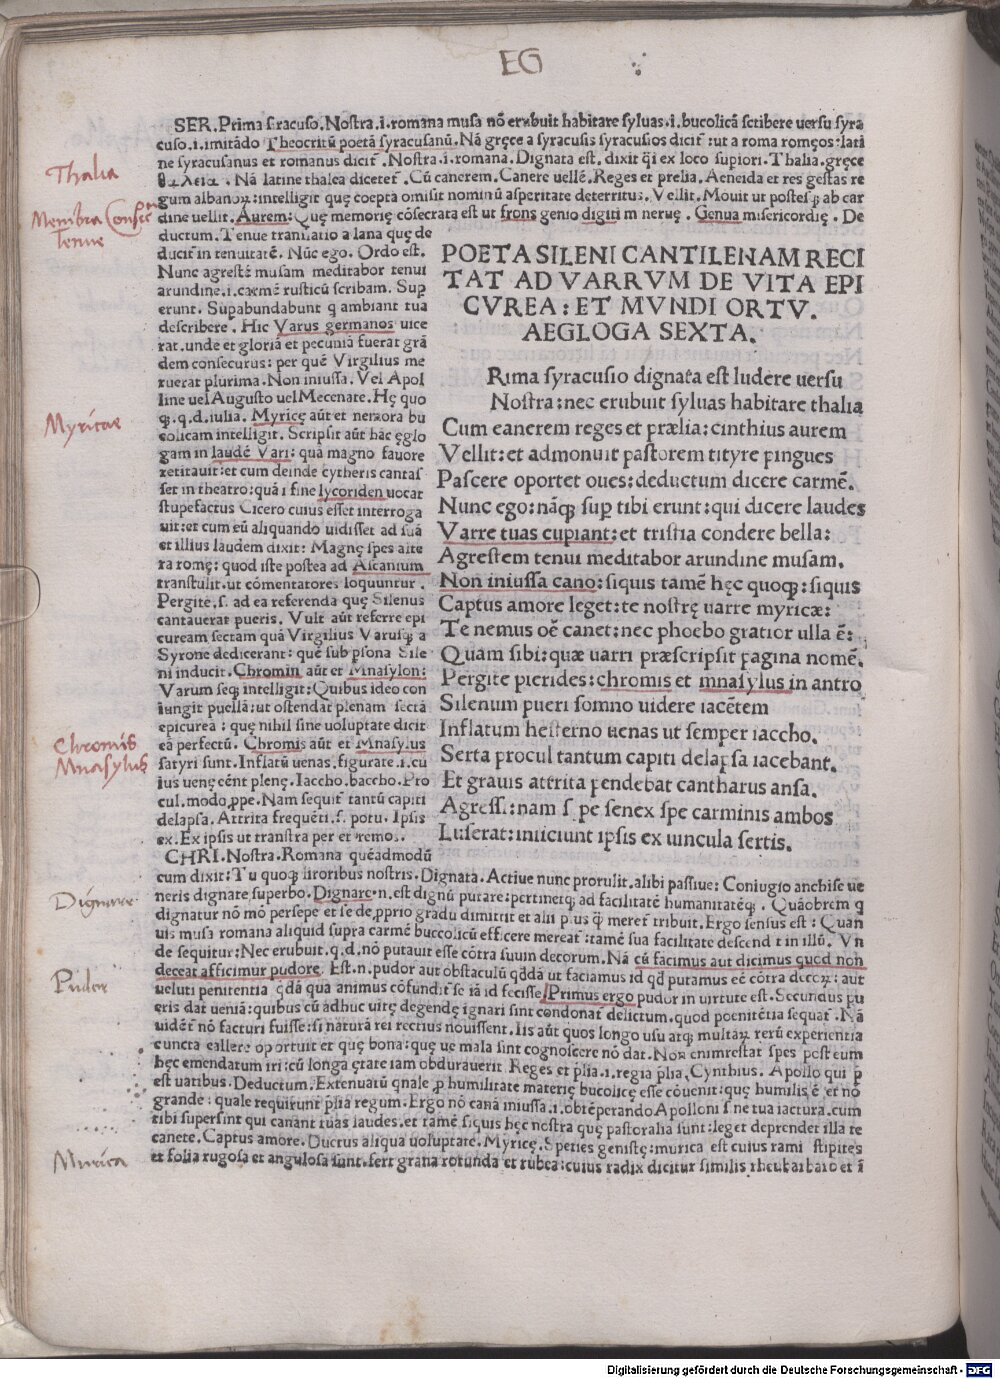 EG
SER.Prima syracuso.Nostra.i.romana musa nō erubuit habitare syluas.i.bucolicā scribere uersu syra
cuso.i.imitādo Theocritū poetā syracusanū.Nā gręce a syracusis syracusios dicit᷑:ut a roma romęos:lati
ne syracusanus et romanus dicit᷑.Nostra.i.romana.Dignata est.dixit ex loco supiori.Thalia.gręce
θαλεια.Nā latine thalea diceret᷑.Cū canerem.Canere uellē.Reges et prelia.Aeneida et res gestas re
gum albanoꝝ:intelligit quę coepta omisit nominū asperitate deterritus.Vellit.Mouit ut postes ab car
dine uellit.Aurem:Quę memorię cōsecrata est ut frons genio digiti mineruę.Genua misericordię.De
ductum.Tenue translatio a lana quę de
ducit᷑ in tenuitatē.Nūc ego.Ordo est.
Nunc agrestē musam meditabor tenui
arundine.i.carmē rusticū scribam.Sup
erunt.Supabundabunt q ambiant tua
describere.Hic Varus germanos uice
rat.unde et gloriā et pecuniā fuerat grā
dem consecutus:per quē Virgilius me
ruerat plurima.Non iniussa.Vel Apol
line uel Augusto uel Mecenate.Hę quo
q̨.q.d.iulia.Myricę aūt et nemora bu
colicam intelligit.Scripsit aūt hāc ęglo
gam in laudē Vari:quā magno fauore
recitauit:et cum deinde cytheris cantas
set in theatro:quā ī fine lycoriden uocat
stupefactus Cicero cuius esset interroga
uit:et cum eū aliquando uidisset ad suā
et illius laudem dixit:Magnę spes alte
ra romę:quod iste postea ad Ascanium
transtulit.ut cōmentatores loquuntur.
Pergite.s.ad ea referenda quę Silenus
cantauerat pueris.Vult aūt referre epi
cuream sectam quā Virgilius Varusq̨ a
Syrone dedicerant:quē sub psona Sile
ni inducit.Chromin aūt et Mnasylon:
Varum seq̨ intelligit:Quibus ideo con
iungit puellā:ut ostendat plenam sectā
epicurea:quę nihil sine uoluptate dicit
eā perfectū.Chromis aūt et Mnasylus
satyri sunt.Inflatū uenas.figurate.i.cu
ius uenę cēnt plenę.Iaccho.baccho.Pro
cul.modo ppe.Nam sequit᷑ tantū capiti
delapsa.Attrita frequēti.s.potu.Ipsis
ex.Ex ipsis ut transtra per et remos.
POETA SILENI CANTILENAM RECI
TAT AD VARRVM DE VITA EPI
CVREA:ET MVNDI ORTV.
AEGLOGA SEXTA.
Rima syracusio dignata est ludere uersu
Nostra:nec erubuit syluas habitare thalia
Cum canerem reges et prælia:cinthius aurem
Vellit:et admonuit pastorem tityre pingues
Pascere oportet oues:deductum dicere carmē.
Nunc ego:nāq̨ sup tibi erunt:qui dicere laudes
Varre tuas cupiant:et tristia condere bella:
Agrestem tenui meditabor arundine musam.
Non iniussa cano:siquis tamē hęc quoq̨:siquis
Captus amore leget:te nostrę uarre myricæ:
Te nemus oē canet:nec phoebo gratior ulla ē:
Quam sibi:quæ uarri præscripsit pagina nomē.
Pergite pierides:chromis et mnasylus in antro
Silenum pueri somno uidere iacētem
Inflatum hesterno uenas ut semper iaccho.
Serta procul tantum capiti delapsa iacebant.
Et grauis attrita pendebat cantharus ansa.
Agressi:nam sępe senex spe carminis ambos
Luserat:iniiciunt ipsis ex uincula sertis.
CHRI.Nostra.Romana quēadmodū
cum dixit:Tu quoq̨ litoribus nostris.Dignata.Actiue nunc protulit.alibi passiue:Coniugio anchise ue
neris dignate superbo.Dignare.n.est dignū putare:pertinetq̨ ad facilitatē humanitatēq̨.Quāobrem q
dignatur nō mō persepe et se de pprio gradu dimittit et alii plus q̄ meret᷑ tribuit.Ergo sensus est:Quan
uis musa romana aliquid supra carmē buccolicū efficere mereat᷑:tamē sua facilitate descendit in illū.Vn
de sequitur:Nec erubuit.q.d.nō putauit esse cōtra suum decorum.Nā cū facimus aut dicimus quod non
deceat afficimur pudore.Est.n.pudor aut obstaculū qddā ut faciamus id qd putamus eē cōtra decoꝝ:aut
ueluti penitentia qdā qua animus cōfundit᷑ se iā id fecisse/Primus ergo pudor in uirtute est.Secundus pu
eris dat ueniā:quibus cū adhuc uitę degendę ignari sint condonat᷑ delictum.quod poenitētia sequat᷑.Nā
uidēt᷑ nō facturi fuisse:si naturā rei rectius nouissent.Iis aūt quos longo usu atq̨ multaꝝ rerū experientia
cuncta callere oportuit et quę bona:quę ue mala sint cognoscere nō dat᷑.Non enim restat spes post eum
hęc emendatum iri:cū longa ętate iam obdurauerit.Reges et plia.i.regia plia.Cynthius.Apollo qui p
est uatibus.Deductum.Extenuatū quale p humilitate materię bucolicę esse cōuenit:quę humilis ē et nō
grande:quale requirunt plia regum.Ergo nō canā iniussa.i.obtēperando Apolloni sine tua iactura.cum
tibi supersint qui canant tuas laudes.et tamē siquis hęc nostra quę pastoralia sunt:leget deprendet illa te
canere.Captus amore.Ductus aliqua uoluptate.Myricę.Species genistę:murica est cuius rami stipites
et folia rugosa et angulosa sunt.fert grana rotunda et rubea:cuius radix dicitur similis rheubarbaro et ī
Thalia
Membra Consecr
Tenue
Myricae
Chromis
Mnasylus
Dignare
Pudor
Murica
Digitalisierung gefördert durch die Deutsche Forschungsgemeinschaft - DFG